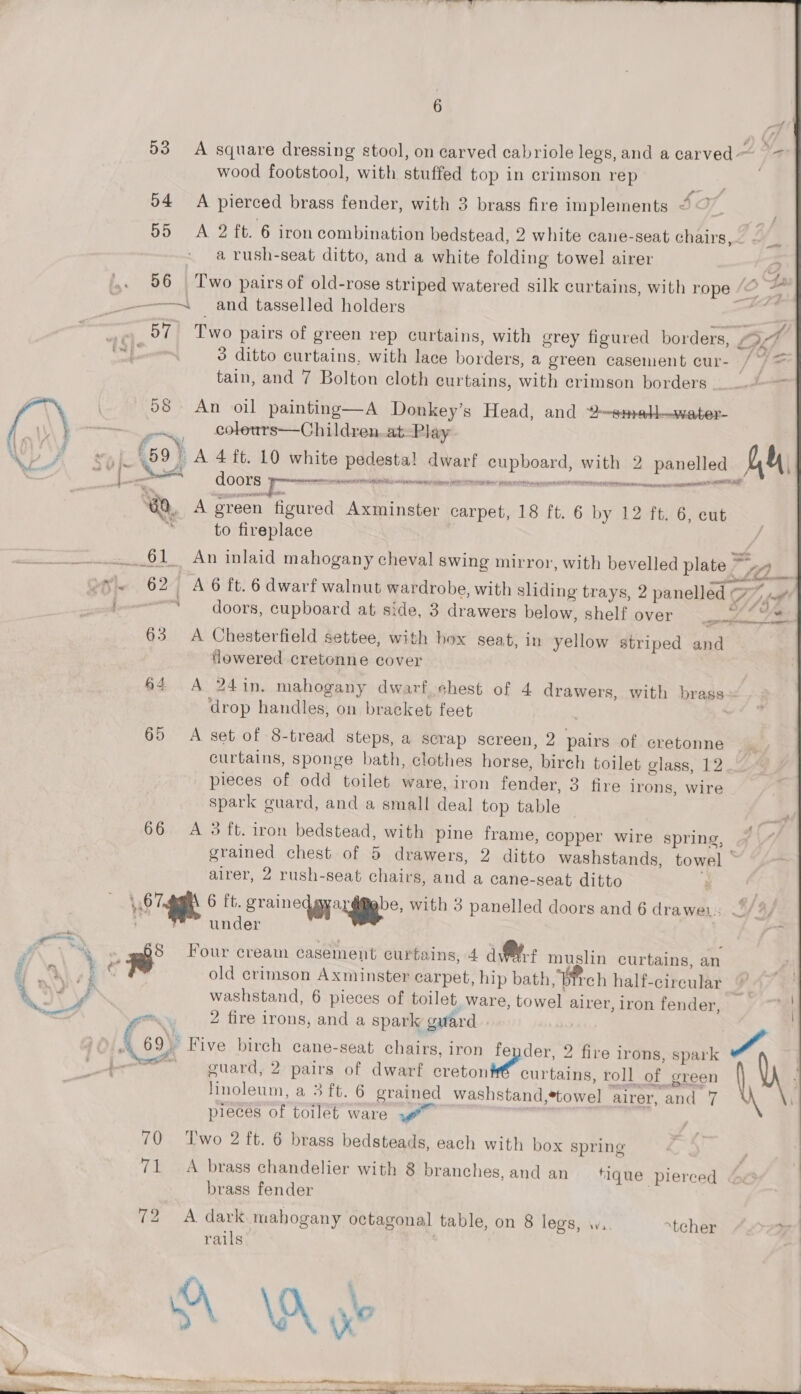 6
53 A square dressing stool, on carved cabriole legs, and a carved
wood footstool, with stuffed top in crimson rep
54 A pierced brass fender, with 3 brass fire implements
55 A 2 ft. 6 iron combination bedstead, 2 white cane-seat chairs,
a rush-seat ditto, and a white folding towel airer
56 Two pairs of old-rose striped watered silk curtains, with rope
and tasselled holders
57 Two pairs of green rep curtains, with grey figured borders,
3 ditto curtains, with lace borders, a green casement cur-
tain, and 7 Bolton cloth curtains, with crimson borders
58 An oil painting—A Donkey's Head, and 2 small water-
colours—Children at Play
59 A 4 ft. 10 white pedestal dwarf cupboard, with 2 panelled
doors
60 A green figured Axminster carpet, 18 ft. 6 by 12 ft. 6, cut
to fireplace
61 An inlaid mahogany cheval swing mirror, with bevelled plate
62 A 6 ft. 6 dwarf walnut wardrobe, with sliding trays, 2 panelled
doors, cupboard at side, 3 drawers below, shelf over
63 A Chesterfield settee, with box seat, in yellow striped and
flowered cretonne cover
64 A 24 in. mahogany dwarf chest of 4 drawers, with brass
drop handles, on bracket feet
65 A set of 8-tread steps, a scrap screen, 2 pairs of cretonne
curtains, sponge bath, clothes horse, birch toilet glass, 12
pieces of odd toilet ware, iron fender, 3 fire irons, wire
spark guard, and a small deal top table
66 A 3 ft. iron bedstead, with pine frame, copper wire spring,
grained chest of 5 drawers, 2 ditto washstands, towel
airer, 2 rush-seat chairs, and a cane-seat ditto
67 6 ft. grained be, with 3 panelled doors and 6 drawers
under
68 Four cream casement curtains, 4 dwarf muslin curtains, an
old crimson Axminster carpet, hip bath, birch half-circular
washstand, 6 pieces of toilet ware, towel airer, iron fender,
2 fire irons, and a spark guard
69 Five birch cane-seat chairs, iron fender, 2 fire irons, spark
guard, 2 pairs of dwarf cretonne curtains, roll of green
linoleum, a 3 ft. 6 grained washstand, towel airer, and 7
pieces of toilet ware
70 Two 2 ft. 6 brass bedsteads, each with box spring
71 A brass chandelier with 8 branches, and an tique pierced
brass fender
72 A dark mahogany octagonal table, on 8 legs, tcher
rails